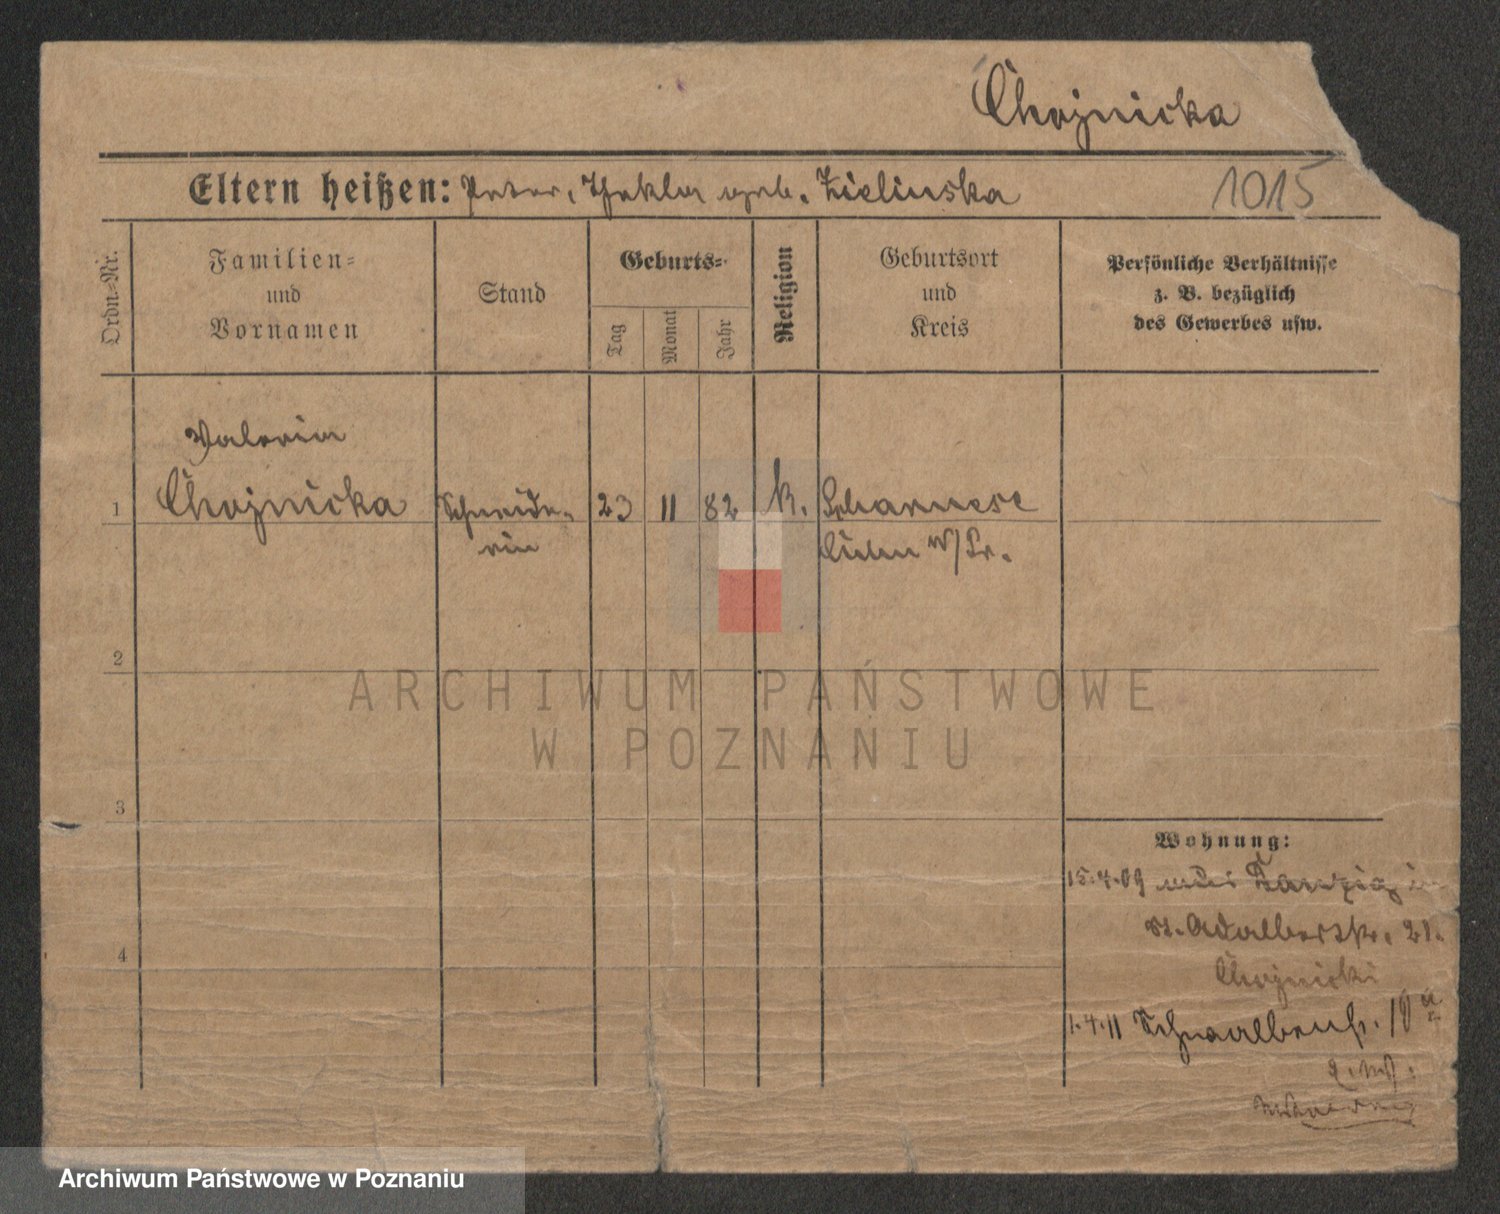 Chojnicka
Eltern heißen: Peter, Thekla geb. Zielinska
1015
Ordn.-Nr.
Familien-
und
Vornamen
Stand
Geburts-
Tag
Monat
Jahr
Religion
Geburtsort
und
Kreis
Persönliche Verhältnisse
z. B. bezüglich
des Gewerbes usw.
Valeria
1 Chojnicka Schneide- 23 11 82 k. Scharnese
rin Culm W/Pr.
2
ARCHIWUM PAŃSTWOWE
W POZNANIU
3
Wohnung:
15.4.09 aus Danzig in
St. Adalbertstr. 21.
4
Chojnicki
1.4.11 Schwalbenstr. 10a
Archiwum Państwowe w Poznaniu